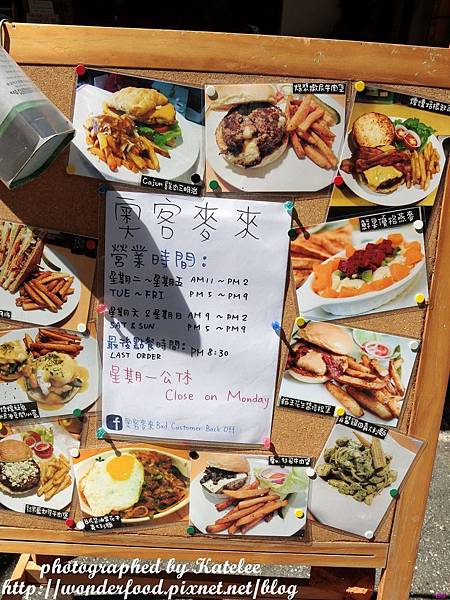 Cajun 雞肉三明治
奧客麥來
營業時間:
星期二~星期五 AM11~PM2
TUE ~ FRI PM5~PM9
星期六 & 星期日 AM9~PM2
SAT & SUN PM5~PM9
最後點餐時間: PM 8:30
LAST ORDER
星期一公休
Close on Monday
奧客麥來 Bad Customer Back Off
鮮果優格燕麥
photographed by Katelee
http://wonderfood.pixnet.net/blog